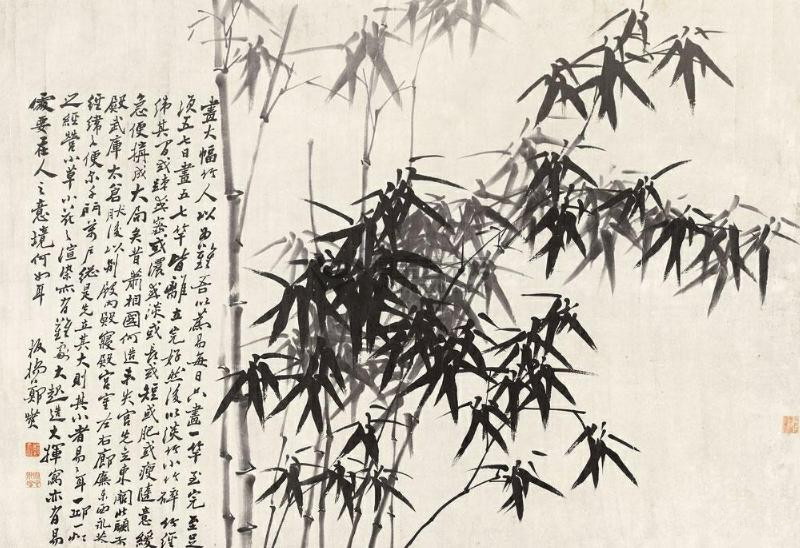 畫大幅竹人以為難吾以為易每日只畫一竿至完至足
須五七日畫五七竿皆離立完好然後以淡竹小竹碎竹經
緯其間或疎或密或濃或淡或長或短或肥或瘦隨意緩
急便搆成大局矣昔蕭相國何造未央宮先立東闕北闕前
殿武庫太倉然後以別殿內殿寢殿宮室左右廊廡東西永巷
經緯之便尔千門萬戶總是先立其大則其小者易易耳一邱一壑
之經營小草小花之渲染亦有難處大起造大揮寫亦有易
處要在人之意境何如耳
板橋鄭燮